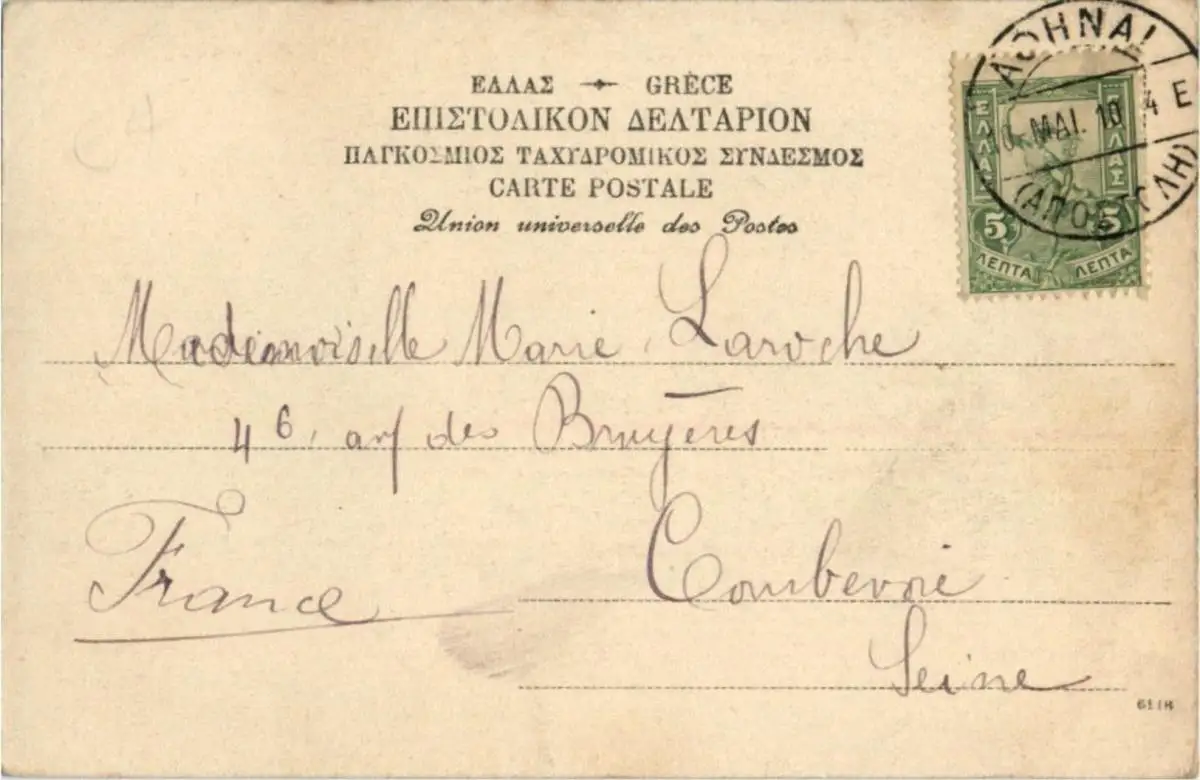 ΕΛΛΑΣ GRÈCE
ΕΠΙΣΤΟΛΙΚΟΝ ΔΕΛΤΑΡΙΟΝ
ΠΑΓΚΟΣΜΙΟΣ ΤΑΧΥΔΡΟΜΙΚΟΣ ΣΥΝΔΕΣΜΟΣ
CARTE POSTALE
Union universelle des Postes
ΑΘΗΝΑΙ
10. ΜΑΙ. 10 4 Ε
(ΑΠΟΣΤΟΛΗ)
ΕΛΛΑΣ ΕΛΛΑΣ
5 5
ΛΕΠΤΑ ΛΕΠΤΑ
Mademoiselle Marie Laroche
46, des Bruyères
France
Courbevoie
Seine
6118